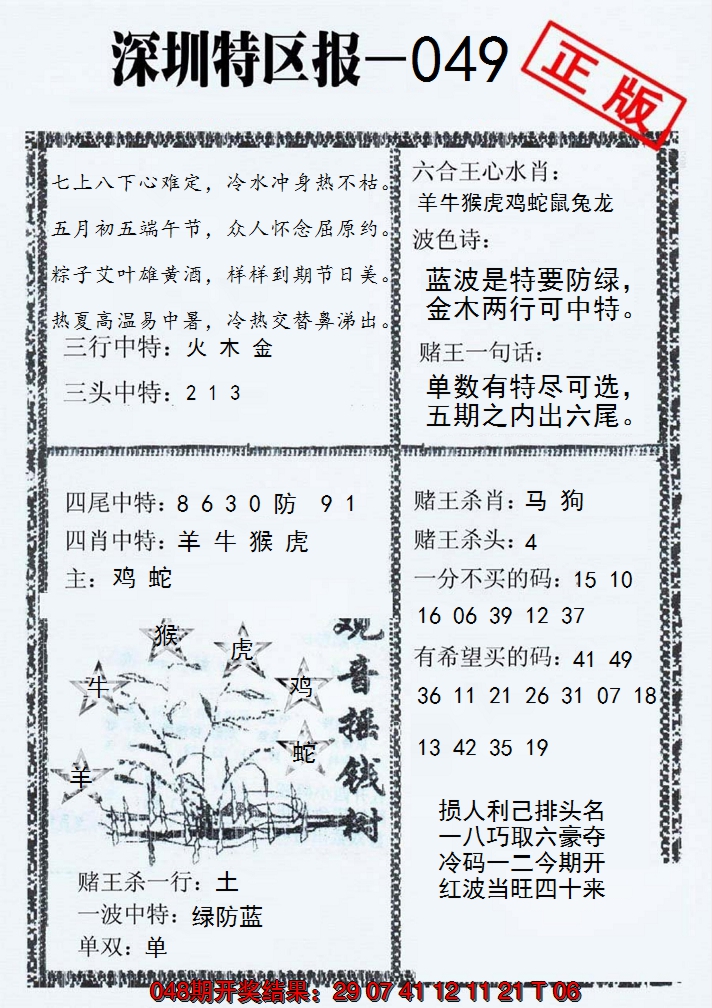 深圳特区报—049
正版
七上八下心难定，冷水冲身热不枯。
五月初五端午节，众人怀念屈原约。
粽子艾叶雄黄酒，样样到期节日美。
热夏高温易中暑，冷热交替鼻涕出。
三行中特：火 木 金
三头中特：2 1 3
六合王心水肖：
羊牛猴虎鸡蛇鼠兔龙
波色诗：
蓝波是特要防绿，
金木两行可中特。
赌王一句话：
单数有特尽可选，
五期之内出六尾。
四尾中特：8 6 3 0 防 9 1
四肖中特：羊 牛 猴 虎
主：鸡 蛇
猴
虎
牛
鸡
蛇
羊
观音摇钱树
赌王杀一行：土
一波中特：绿防蓝
单双：单
赌王杀肖：马 狗
赌王杀头：4
一分不买的码：15 10
16 06 39 12 37
有希望买的码：41 49
36 11 21 26 31 07 18
13 42 35 19
损人利己排头名
一八巧取六豪夺
冷码一二今期开
红波当旺四十来
048期开奖结果：29 07 41 12 11 21 T 06